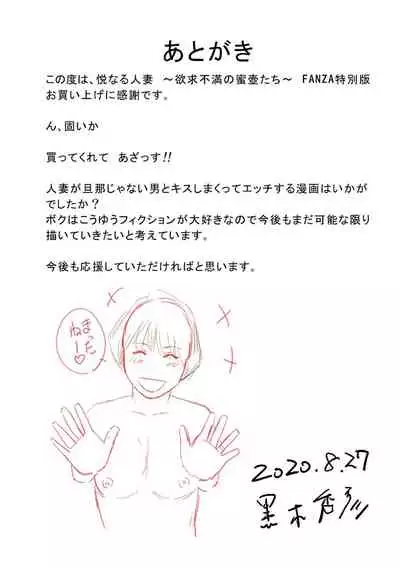 あとがき
この度は、悦なる人妻　～欲求不満の蜜壺たち～　FANZA特別版
お買い上げに感謝です。
ん、固いか
買ってくれて　あざっす!!
人妻が旦那じゃない男とキスしまくってエッチする漫画はいかが
でしたか？
ボクはこうゆうフィクションが大好きなので今後もまだ可能な限り
描いていきたいと考えています。
今後も応援していただければと思います。
まったねー♡
2020.8.27
黒木秀彦